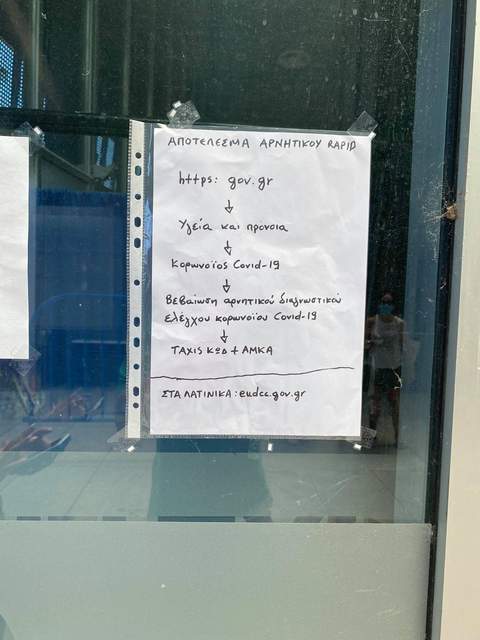 ΑΠΟΤΕΛΕΣΜΑ ΑΡΝΗΤΙΚΟΥ RAPID
https: gov.gr
↓
Υγεία και πρόνοια
↓
Κορωνοϊός Covid-19
↓
Βεβαίωση αρνητικού διαγνωστικού
ελέγχου κορωνοϊού Covid-19
↓
TAXIS ΚΩΔ + ΑΜΚΑ
ΣΤΑ ΛΑΤΙΝΙΚΑ: eudcc.gov.gr